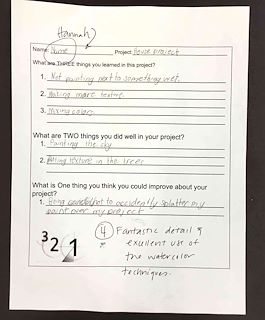 Hannah
Name: Name Project: House project
What are THREE things you learned in this project?
1. Not painting next to something wet.
2. Making more texture.
3. Mixing colors.
What are TWO things you did well in your project?
1. Painting the sky
2. Adding texture in the trees
What is One thing you think you could improve about your
project?
1. Being careful not to accidently splatter my
paint over my project
3 2 1
4 Fantastic detail &
exellent use of
the watercolor
techniques.